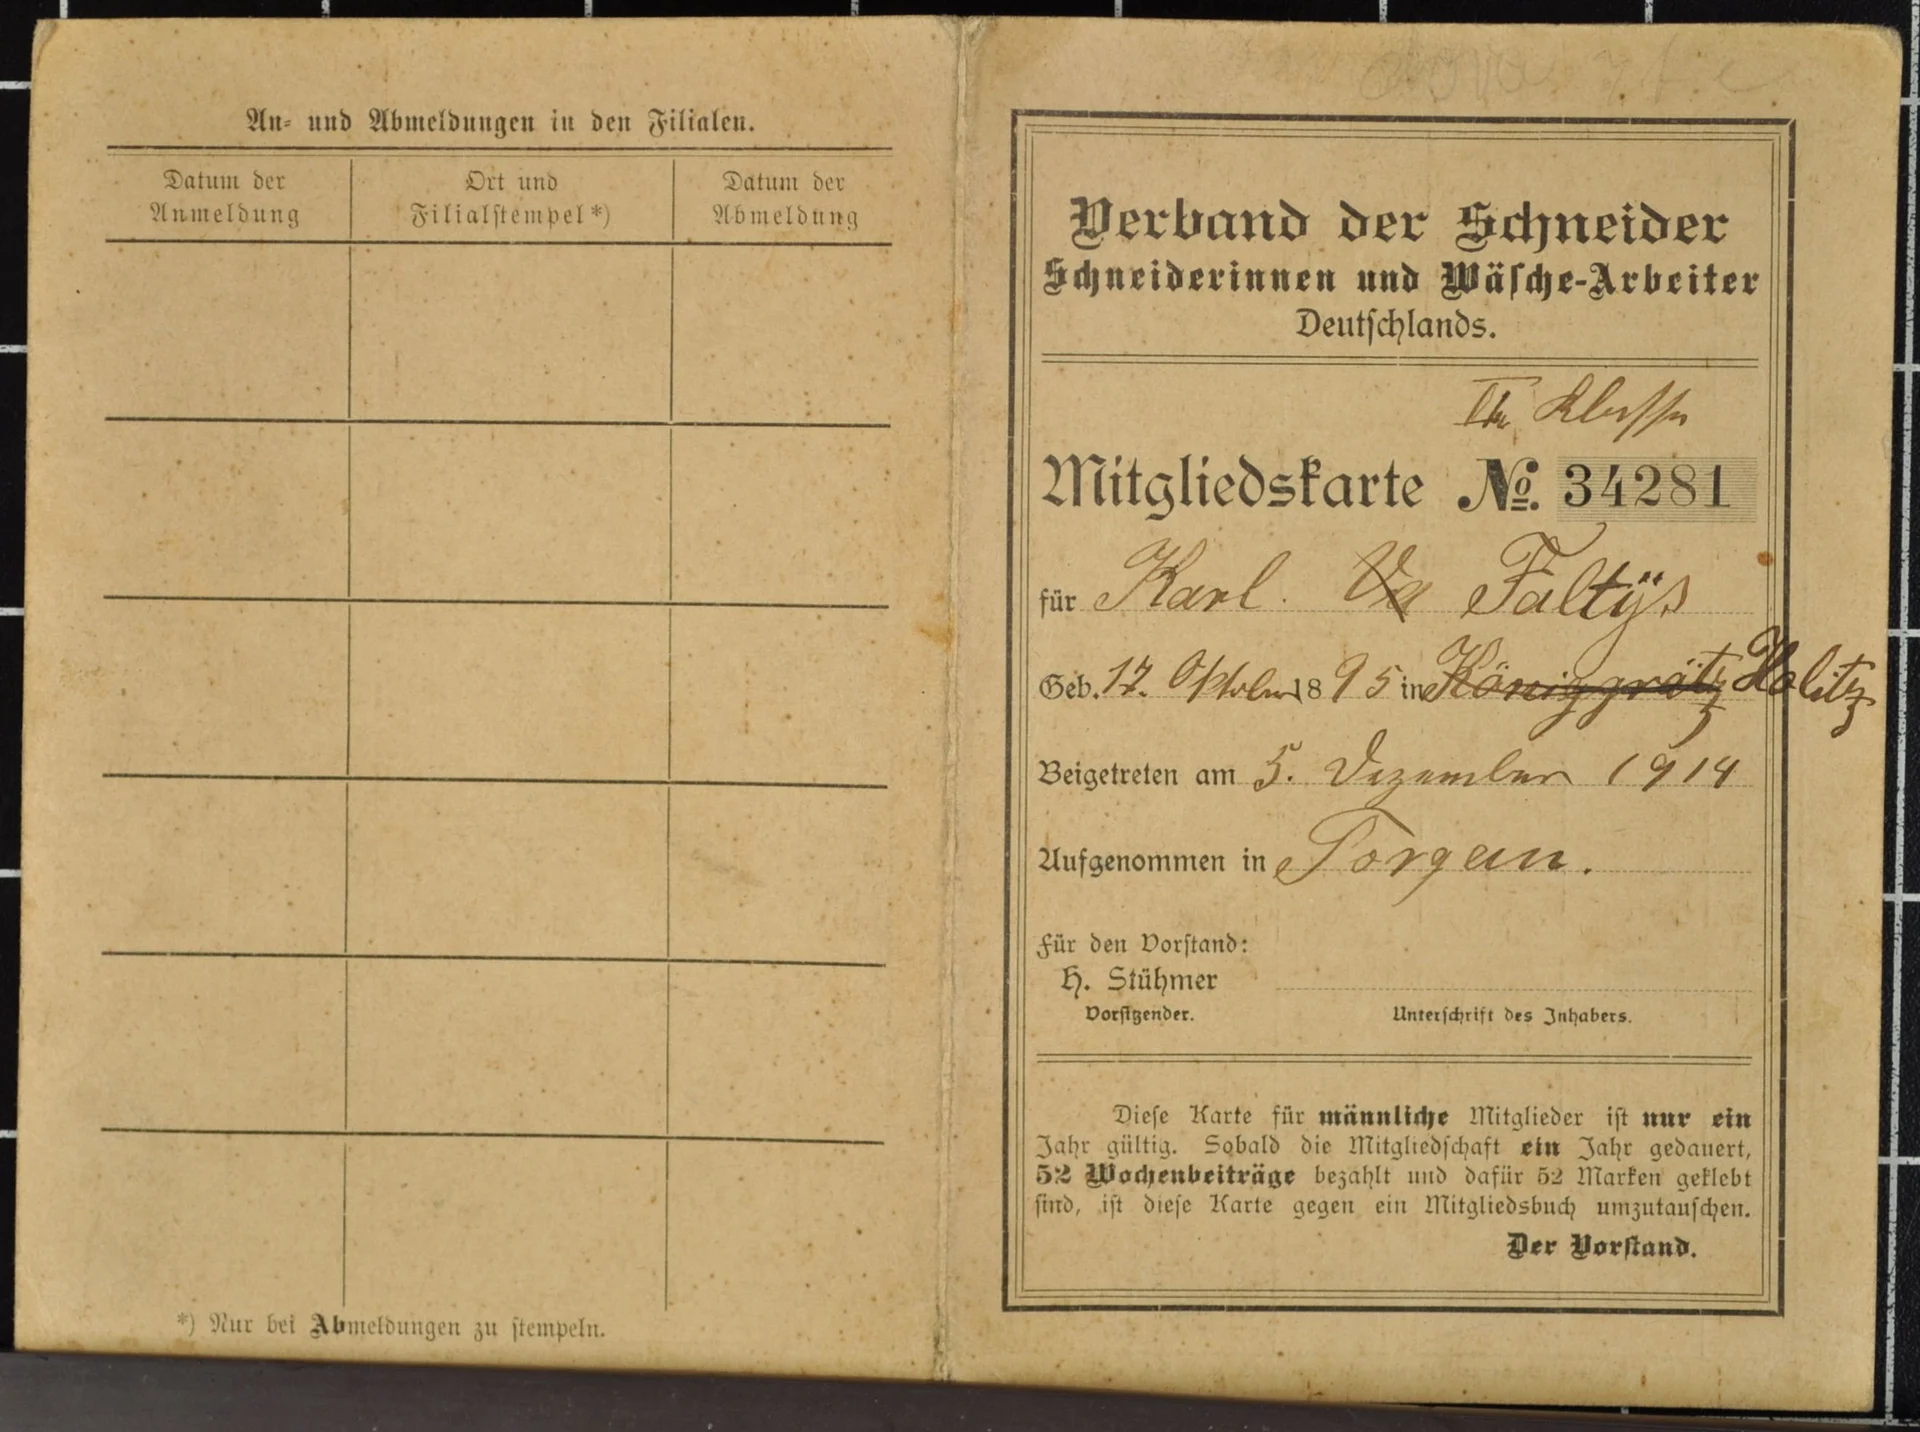 An- und Abmeldungen in den Filialen.
Datum der Anmeldung
Ort und Filialstempel *)
Datum der Abmeldung
*) Nur bei Abmeldungen zu stempeln.
Verband der Schneider
Schneiderinnen und Wäsche-Arbeiter
Deutschlands.
Klasse
Mitgliedskarte No. 34281
für Karl Faltÿs
Geb. 17. Oktober 1895 in Königgrätz Holitz
Beigetreten am 5. Dezember 1914
Aufgenommen in Torgau.
Für den Vorstand:
H. Stühmer
Vorsitzender. Unterschrift des Inhabers.
Diese Karte für männliche Mitglieder ist nur ein
Jahr gültig. Sobald die Mitgliedschaft ein Jahr gedauert,
52 Wochenbeiträge bezahlt und dafür 52 Marken geklebt
sind, ist diese Karte gegen ein Mitgliedsbuch umzutauschen.
Der Vorstand.